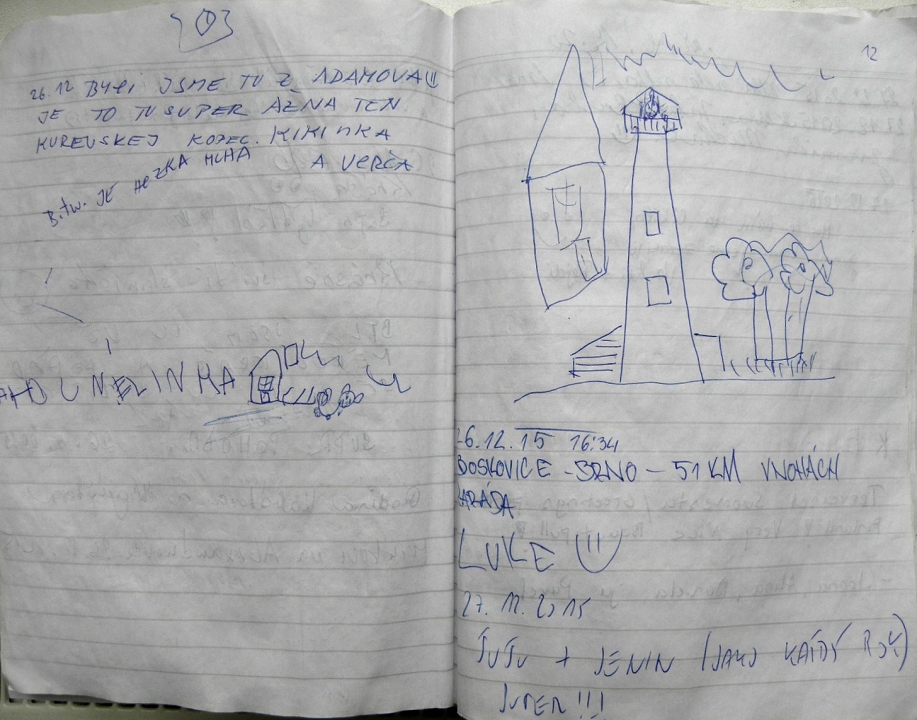 26.12 BYLI JSME TU Z ADAMOVA
JE TO TU SUPER AŽ NA TEN
KUREVSKEJ KOPEC. KIKINKA
A VERČA
B.tw. JE HEZKÁ MLHA
12
26.12.15 16:34
BOSKOVICE - BRNO - 51 KM V NOHÁCH
PARÁDA
LUKE
27.12.2015
JUJU + JENIN (JAKO KAŽDÝ ROK)
SUPER!!!